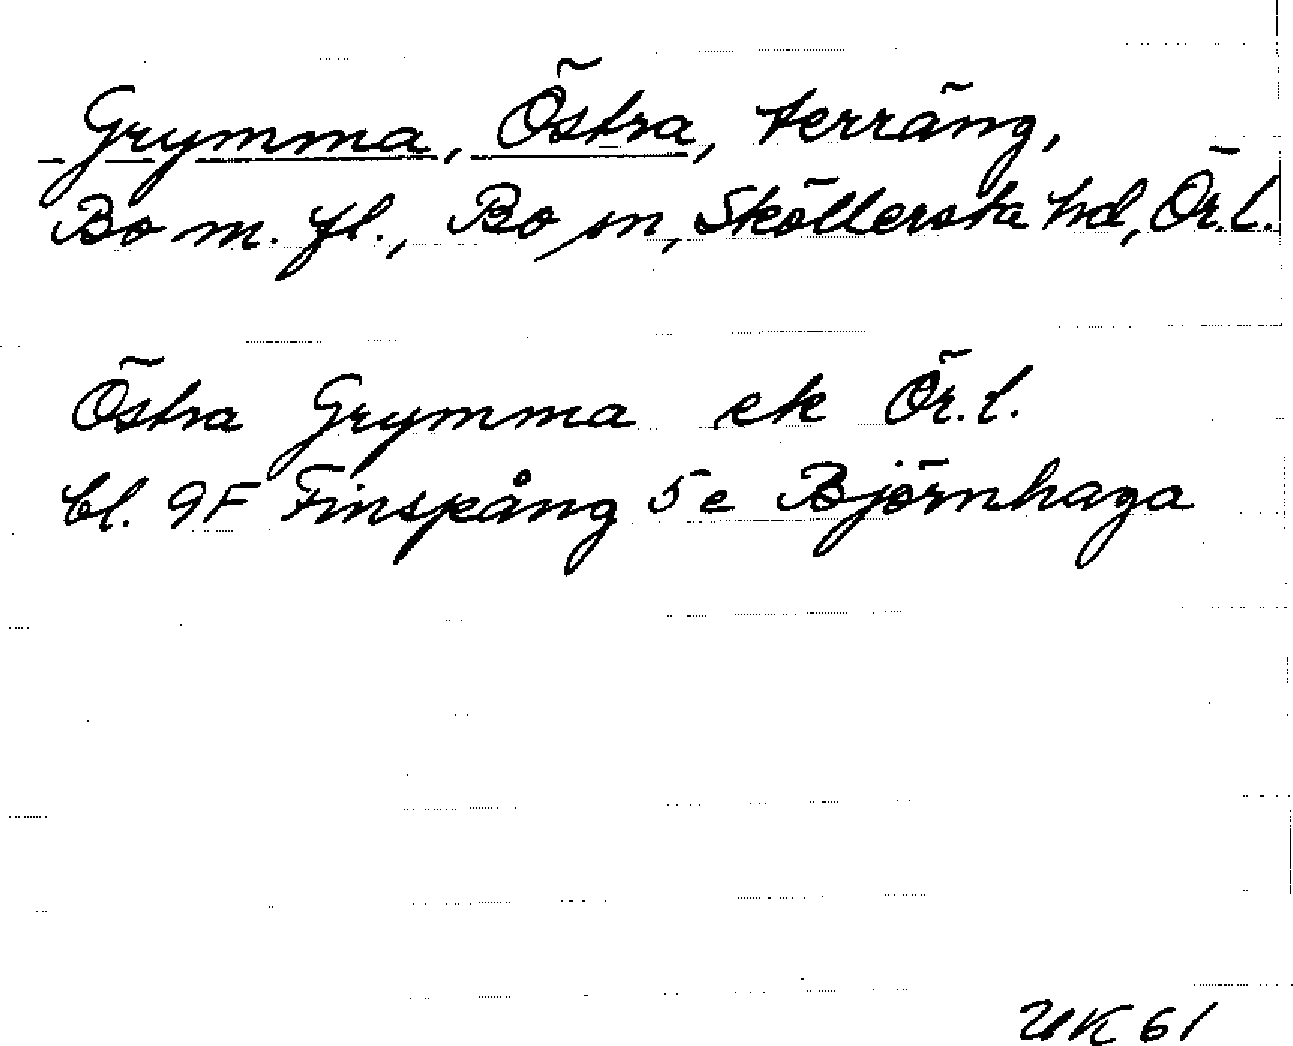 Grymma, Östra, terräng,
Bo m. fl., Bo sn, Sköllersta hd, Ör. l.
Östra Grymma ek Ör. l.
bl. 9F Finspång 5e Björnhaga
UK 61